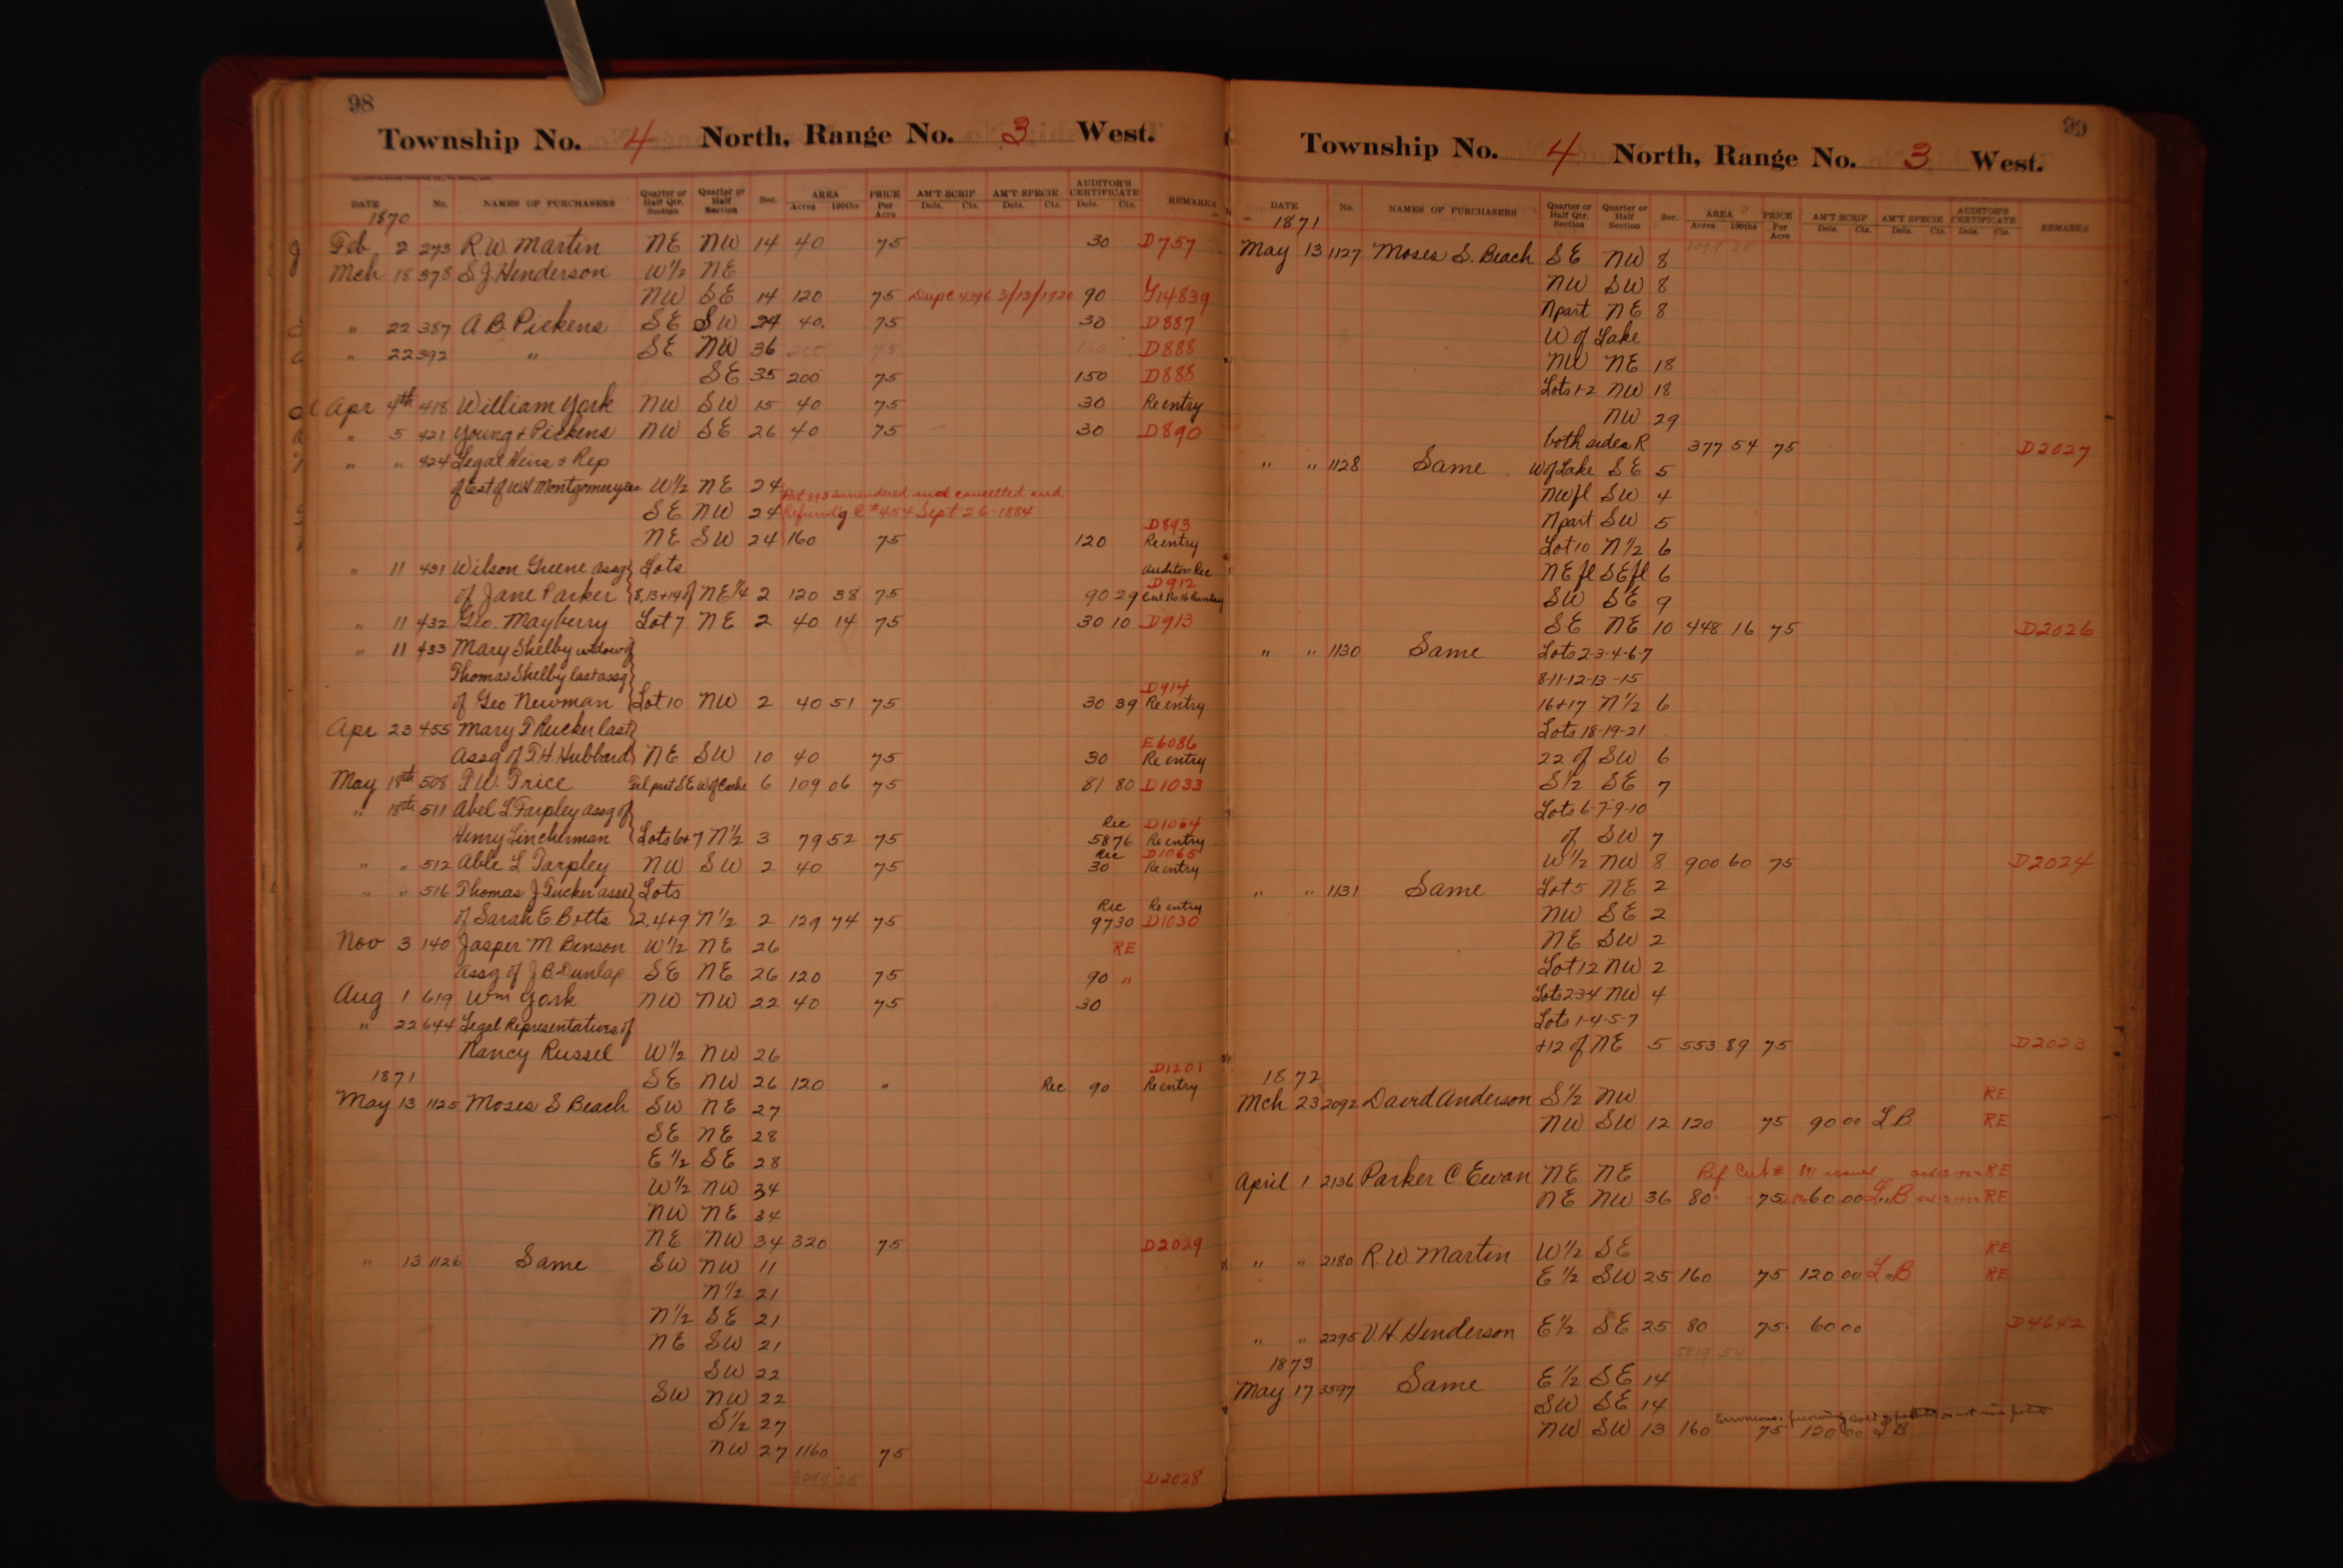 98
Township No. 4 North, Range No. 3 West.
DATE No. NAMES OF PURCHASERS Quarter or Half Qtr. Section Quarter or Half Section Sec. AREA Acres 100ths PRICE Per Acre AM'T SCRIP Dols. Cts. AM'T SPECIE Dols. Cts. AUDITOR'S CERTIFICATE Dols. Cts. REMARKS
1870
Feb 2 273 R W Martin NE NW 14 40 75 30 D757
Mch 18 378 S J Henderson W½ NE
NW SE 14 120 75 Dupc 4396 3/13/1920 90 Y14839
" 22 387 A B Pickens SE SW 24 40. 75 30 D887
" 22 392 " SE NW 36 200 75 150 D888
SE 35 200 75 150 D888
Apr 4th 418 William York NW SW 15 40 75 30 Reentry
" 5 421 Young + Pickens NW SE 26 40 75 30 D890
" " 424 Legal Heirs & Rep
of Est of WH Montgomery W½ NE 24 Pat 893 surrendered and cancelled and
SE NW 24 Refund'g C #454 Sept 26-1884
D893
NE SW 24 160 75 120 Reentry
" 11 431 Wilson Greene assg Lots Auditors Rec
D912
of Jane Parker 8, 13+14 of NE¼ 2 120 38 75 90 29
" 11 432 Geo. Mayberry Lot 7 NE 2 40 14 75 30 10 D913
" 11 433 Mary Shelby widow of
Thomas Shelby last assg
D914
of Geo Newman Lot 10 NW 2 40 51 75 30 39 Reentry
Apr 23 455 Mary T Rucker last
E6086
Assg of T.H. Hubbard NE SW 10 40 75 30 Reentry
May 18th 508 T W. Price 6 109 06 75 81 80 D1033
" 18th 511 Abel L Tarpley assg of
Rec D1064
Henry Lincherman Lots 6+7 N½ 3 79 52 75 58 76 Reentry
Rec D1065
" " 512 Able L Tarpley NW SW 2 40 75 30 Reentry
" " 516 Thomas J Tucker asse Lots
Rec Reentry
of Sarah E Botts 2,4+9 N½ 2 129 74 75 97 30 D1030
Nov 3 140 Jasper M Benson W½ NE 26 RE
assg of J B Dunlap SE NE 26 120 75 90 "
Aug 1 619 Wm York NW NW 22 40 75 30
" 22 644 Legal Representatives of
Nancy Russel W½ NW 26
D1201
SE NW 26 120 " Rec 90 Reentry
1871
May 13 1125 Moses S Beach SW NE 27
SE NE 28
E½ SE 28
W½ NW 34
NW NE 34
NE NW 34 320 75 D2029
" 13 1126 Same SW NW 11
N½ 21
N½ SE 21
NE SW 21
SW 22
SW NW 22
S½ 27
NW 27 1160 75
D2028
99
Township No. 4 North, Range No. 3 West.
DATE No. NAMES OF PURCHASERS Quarter or Half Qtr. Section Quarter or Half Section Sec. AREA Acres 100ths PRICE Per Acre AM'T SCRIP Dols. Cts. AM'T SPECIE Dols. Cts. AUDITOR'S CERTIFICATE Dols. Cts. REMARKS
1871
May 13 1127 Moses S. Beach SE NW 8
NW SW 8
N part NE 8
W of Lake
NW NE 18
Lots 1-2 NW 18
NW 29
both sides R 377 54 75 D2027
" " 1128 Same W of Lake SE 5
NWfl SW 4
N part SW 5
Lot 10 N½ 6
NEfl SEfl 6
SW SE 9
SE NE 10 448 16 75 D2026
" " 1130 Same Lots 2-3-4-6-7
8-11-12-13-15
16+17 N½ 6
Lots 18-19-21
22 of SW 6
S½ SE 7
Lots 6-7-9-10
of SW 7
W½ NW 8 900 60 75 D2024
" " 1131 Same Lot 5 NE 2
NW SE 2
NE SW 2
Lot 12 NW 2
Lots 2 3 4 NW 4
Lots 1-4-5-7
+12 of NE 5 553 89 75 D2023
1872
Mch 23 2092 David Anderson S½ NW RE
NW SW 12 120 75 90 00 L B RE
April 1 2136 Parker C. Ewan NE NE Ref Cert # issued RE
NE NW 36 80 75 60 00 L"B RE
" " 2180 R. W Martin W½ SE RE
E½ SW 25 160 75 120 00 L"B RE
" " 2295 V. H. Henderson E½ SE 25 80 75. 60 00 D4642
1873
May 17 3597 Same E½ SE 14
SW SE 14
NW SW 13 160 75 120 00 L B